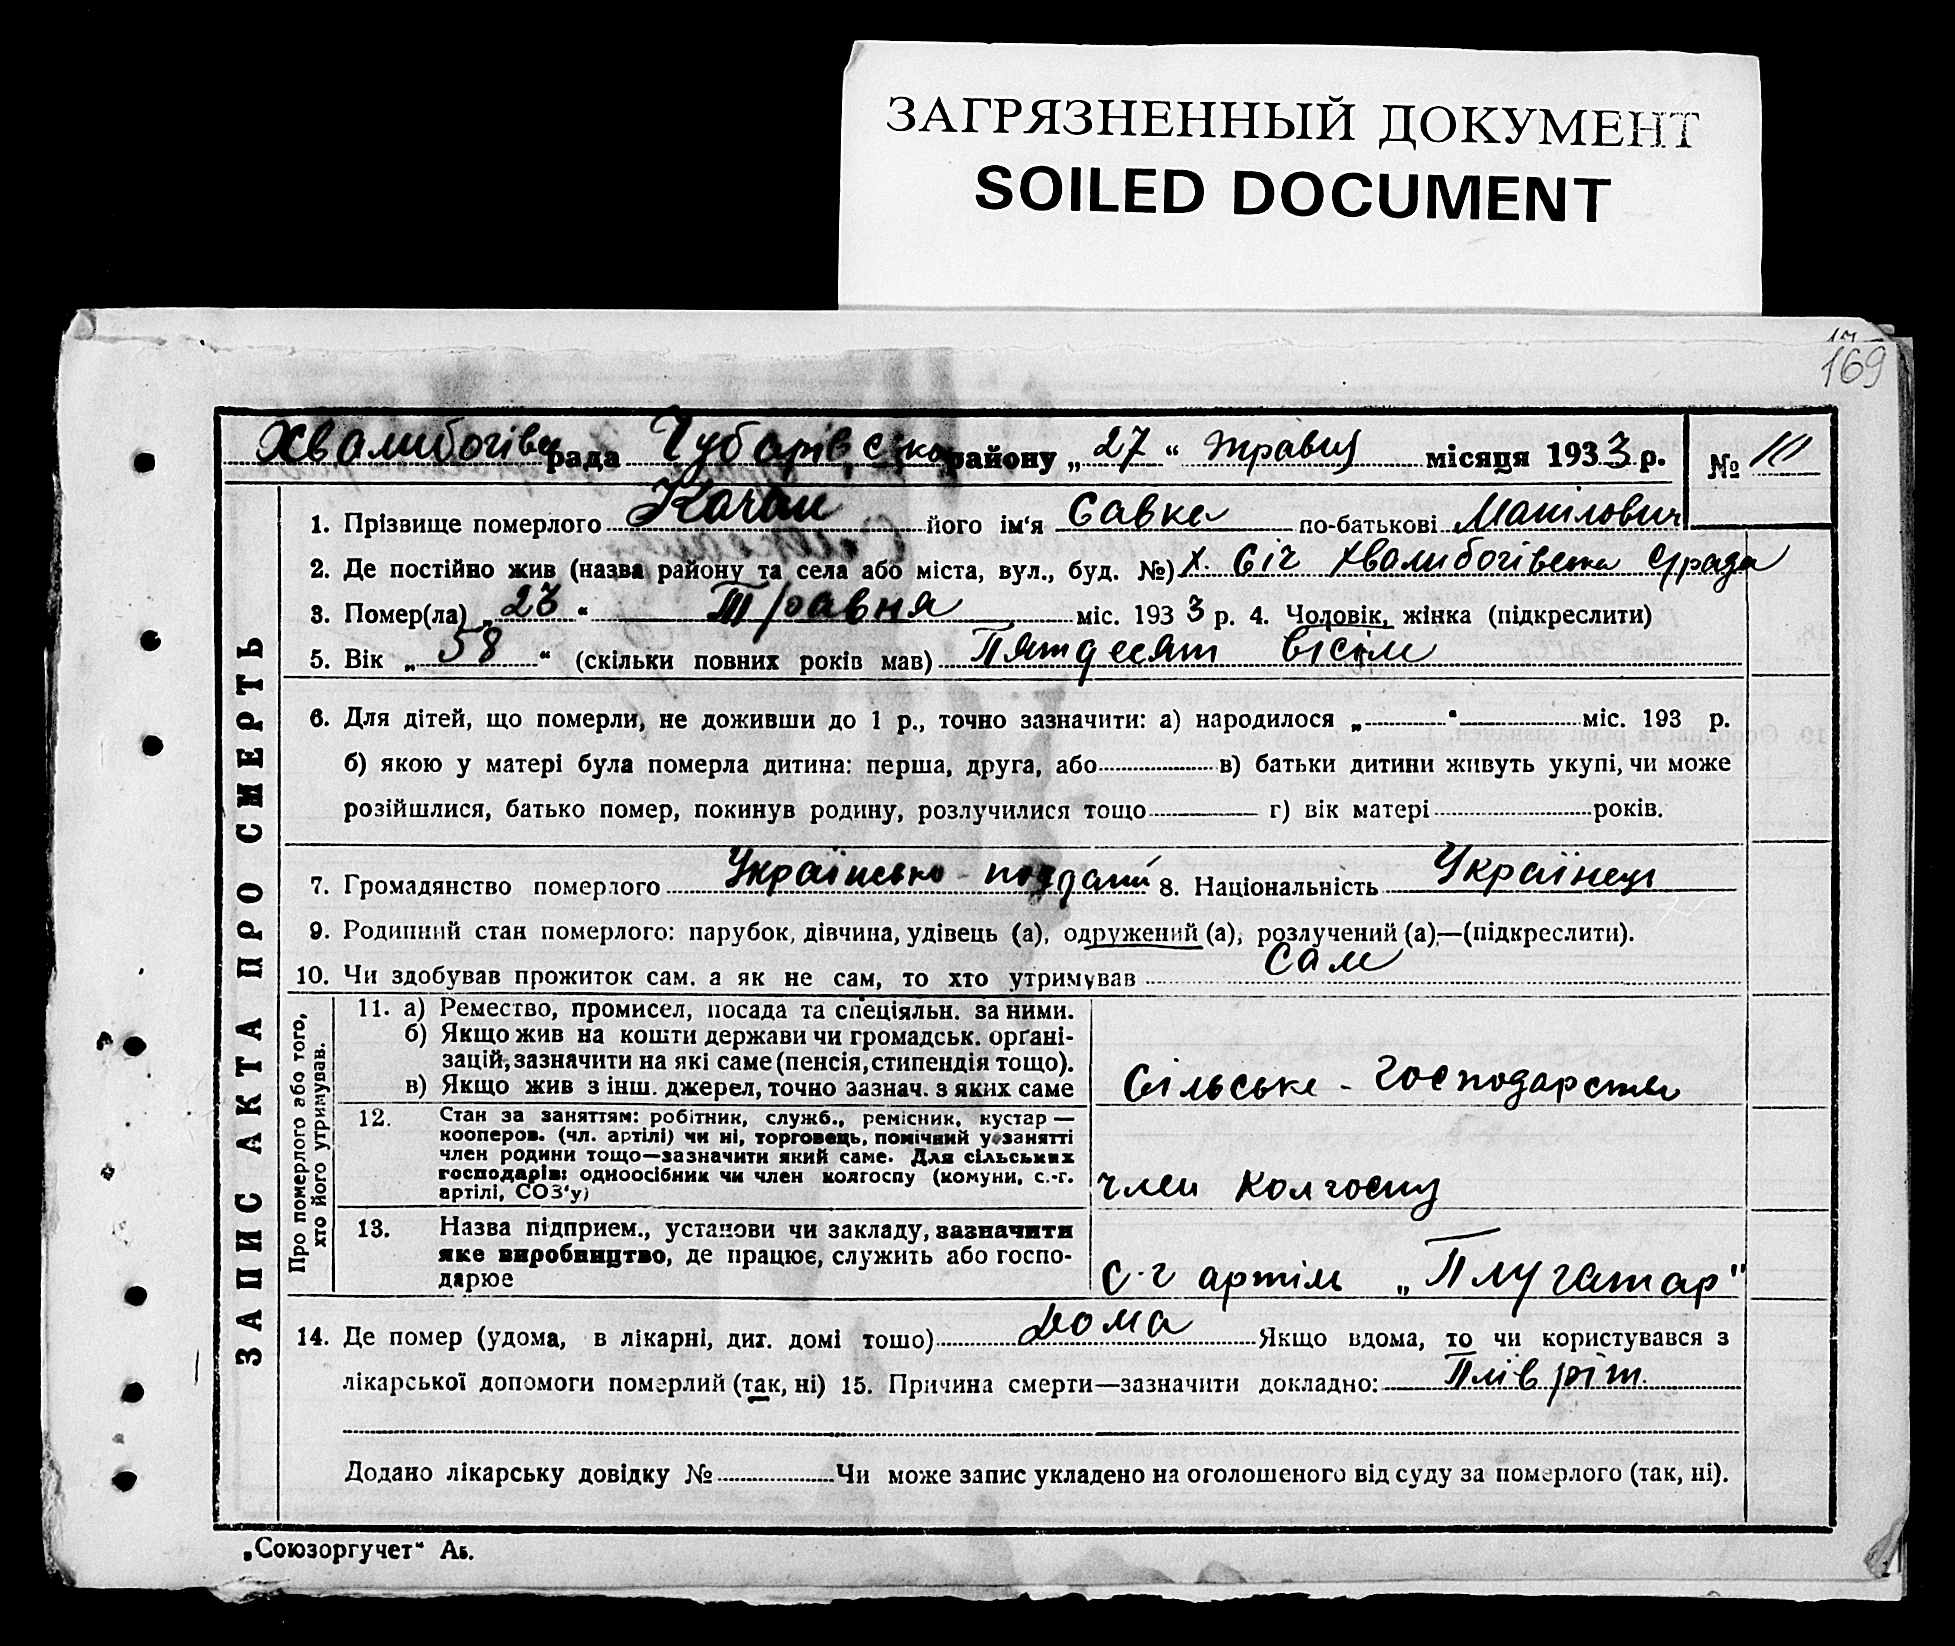 ЗАГРЯЗНЕННЫЙ ДОКУМЕНТ
SOILED DOCUMENT
169
Хвалибогівс рада Чубарівсько району „27“ травня місяця 1933 р. №
1. Прізвище померлого Качан його ім‘я Савка по-батькові
2. Де постійно жив (назва району та села або міста, вул., буд. №) х. Січ Хвалибогівська с/рада
3. Помер(ла) „23“ Травня міс. 1933 р. 4. Чоловік, жінка (підкреслити)
5. Вік „58“ (скільки повних років мав) Пятдесят вісім
6. Для дітей, що померли, не доживши до 1 р., точно зазначити: а) народилося „ “ міс. 193 р.
б) якою у матері була померла дитина: перша, друга, або в) батьки дитини живуть укупі, чи може
розійшлися, батько помер, покинув родину, розлучилися тощо г) вік матері років.
7. Громадянство померлого Українсько-поддани 8. Національність Українець
9. Родинний стан померлого: парубок, дівчина, удівець (а), одружений (а), розлучений (а),—(підкреслити).
10. Чи здобував прожиток сам. а як не сам, то хто утримував Сам
ЗАПИС АКТА ПРО СМЕРТЬ
Про померлого або того,
хто його утримував.
11. а) Ремество, промисел, посада та спеціяльн. за ними.
б) Якщо жив на кошти держави чи громадськ. орґані-
зацій, зазначити на які саме (пенсія, стипендія тощо).
в) Якщо жив з інш. джерел, точно зазнач. з яких саме
Сільське-господарство
12. Стан за заняттям: робітник, служб., ремісник, кустар —
кооперов. (чл. артілі) чи ні, торговець, помічний у занятті
член родини тощо—зазначити який саме. Для сільських
господарів: одноосібник чи член колгоспу (комуни, с.-г.
артілі, СОЗ‘у)
член колгоспу
13. Назва підприєм., установи чи закладу, зазначити
яке виробництво, де працює, служить або госпо-
дарює
с-г артіль „Плугатар"
14. Де помер (удома, в лікарні, дит. домі тошо) Дома Якщо вдома, то чи користувався з
лікарської допомоги померлий (так, ні) 15. Причина смерти—зазначити докладно: Плівріт
Додано лікарську довідку № Чи може запис укладено на оголошеного від суду за померлого (так, ні).
„Союзоргучет“ Аб.